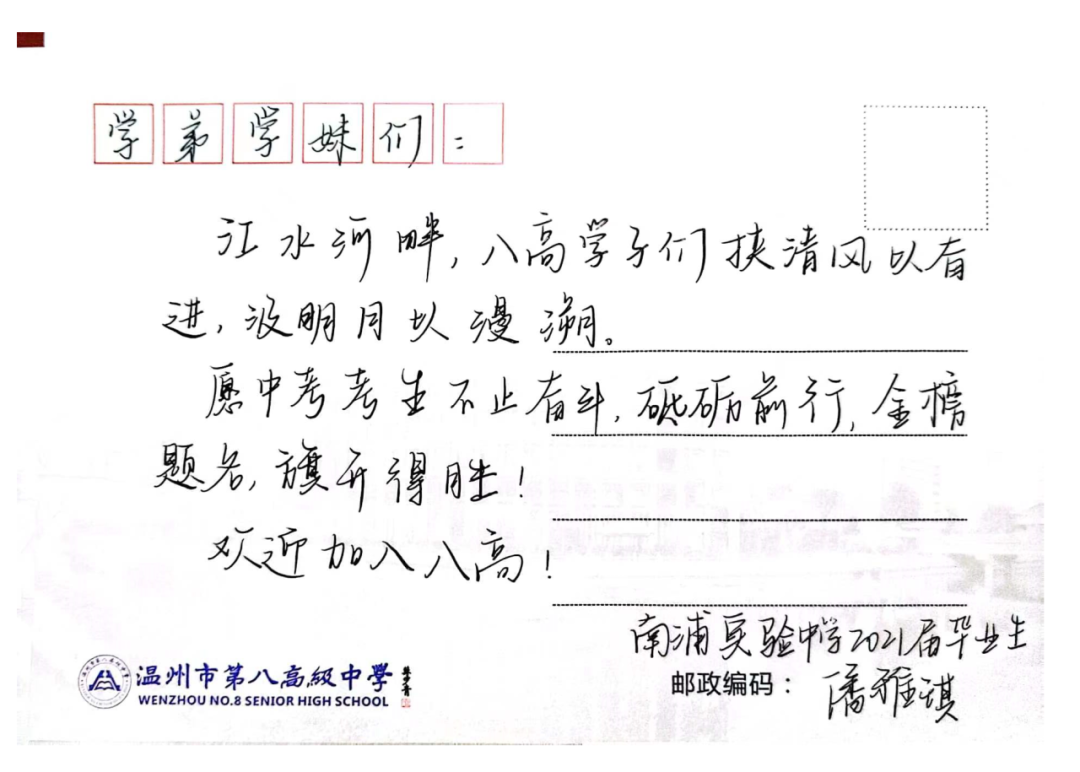 学弟学妹们：
江水河畔，八高学子们挟清风以奋
进，没明月以漫溯。
愿中考考生不止奋斗，砥砺前行，金榜
题名，旗开得胜！
欢迎加入八高！
南浦实验中学2021届毕业生
邮政编码： 潘雅琪
温州市第八高級中學
WENZHOU NO.8 SENIOR HIGH SCHOOL